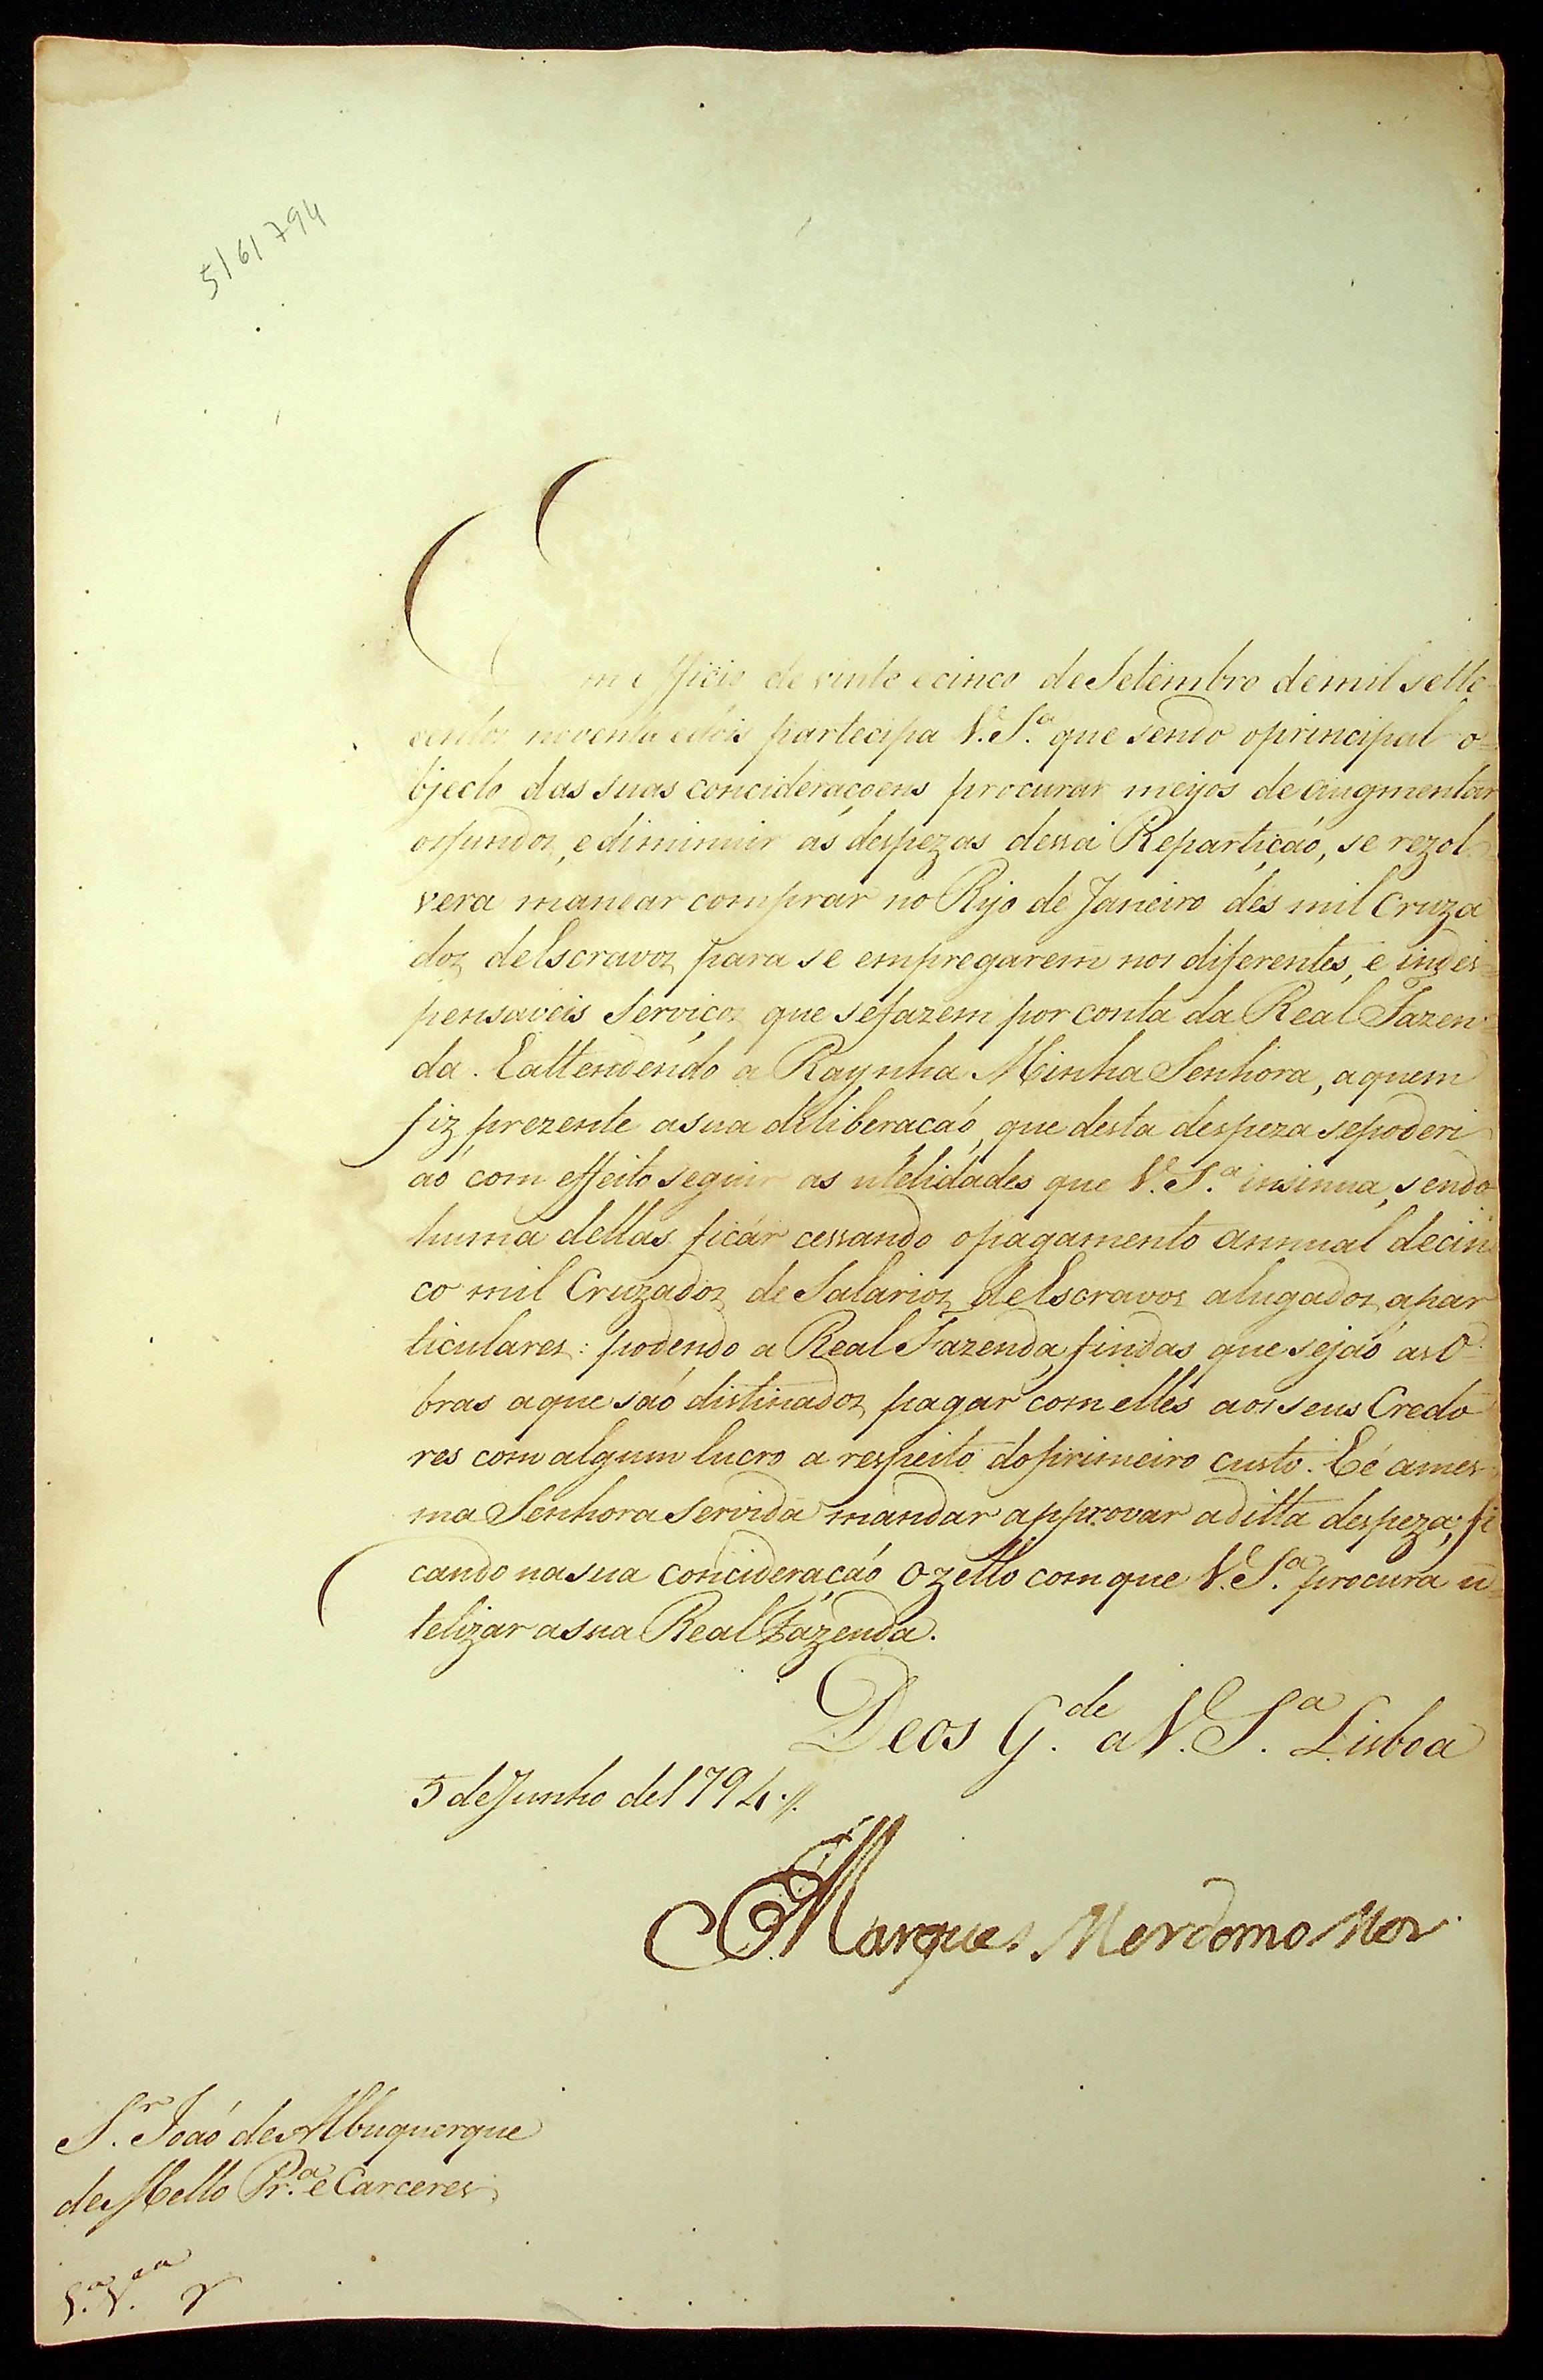 5/6/794
Em officio de vinte e cinco de Setembro de mil sette
centos noventa e dois partecipa V. S.ª que sendo o principal o=
bjecto das suas concideraçoens procurar meijos de augmentar
os fundos, e diminuir as despezas dessa Repartiçaó, se rezol=
vera mandar comprar no Rijo de Janeiro des mil Cruza
dos de Escravos para se empregarem nos diferentes, e indes=
pensaveis Serviços que se fazem por conta da Real Fazen=
da. E attendendo a Raynha Minha Senhora, a quem
fiz prezente a sua deliberacaó, que desta despeza se poderi
aó com effeito seguir as utelidades que V. S.ª insinua, sendo
huma dellas ficár cessando o pagamento annual de cin
co mil Cruzados de Salarios de Escravos alugados a par
ticulares: podendo a Real Fazenda, findas que sejaó as O=
bras a que saó distinados, pagar com elles aos seus Credo
res com algum lucro a respeito do primeiro custo. E é a mes=
ma Senhora servida mandar approvar a ditta despeza; fi
cando na sua concideraçaó o zello com que V. S.ª procura u=
telizar a sua Real Fazenda.
Deos G.de a V. S.ª Lisboa
5 de Junho de 1794.//.
Marques Merdomo Mor.
S.r Joaó de Albuquerque
de Mello Pr.ª e Carceres